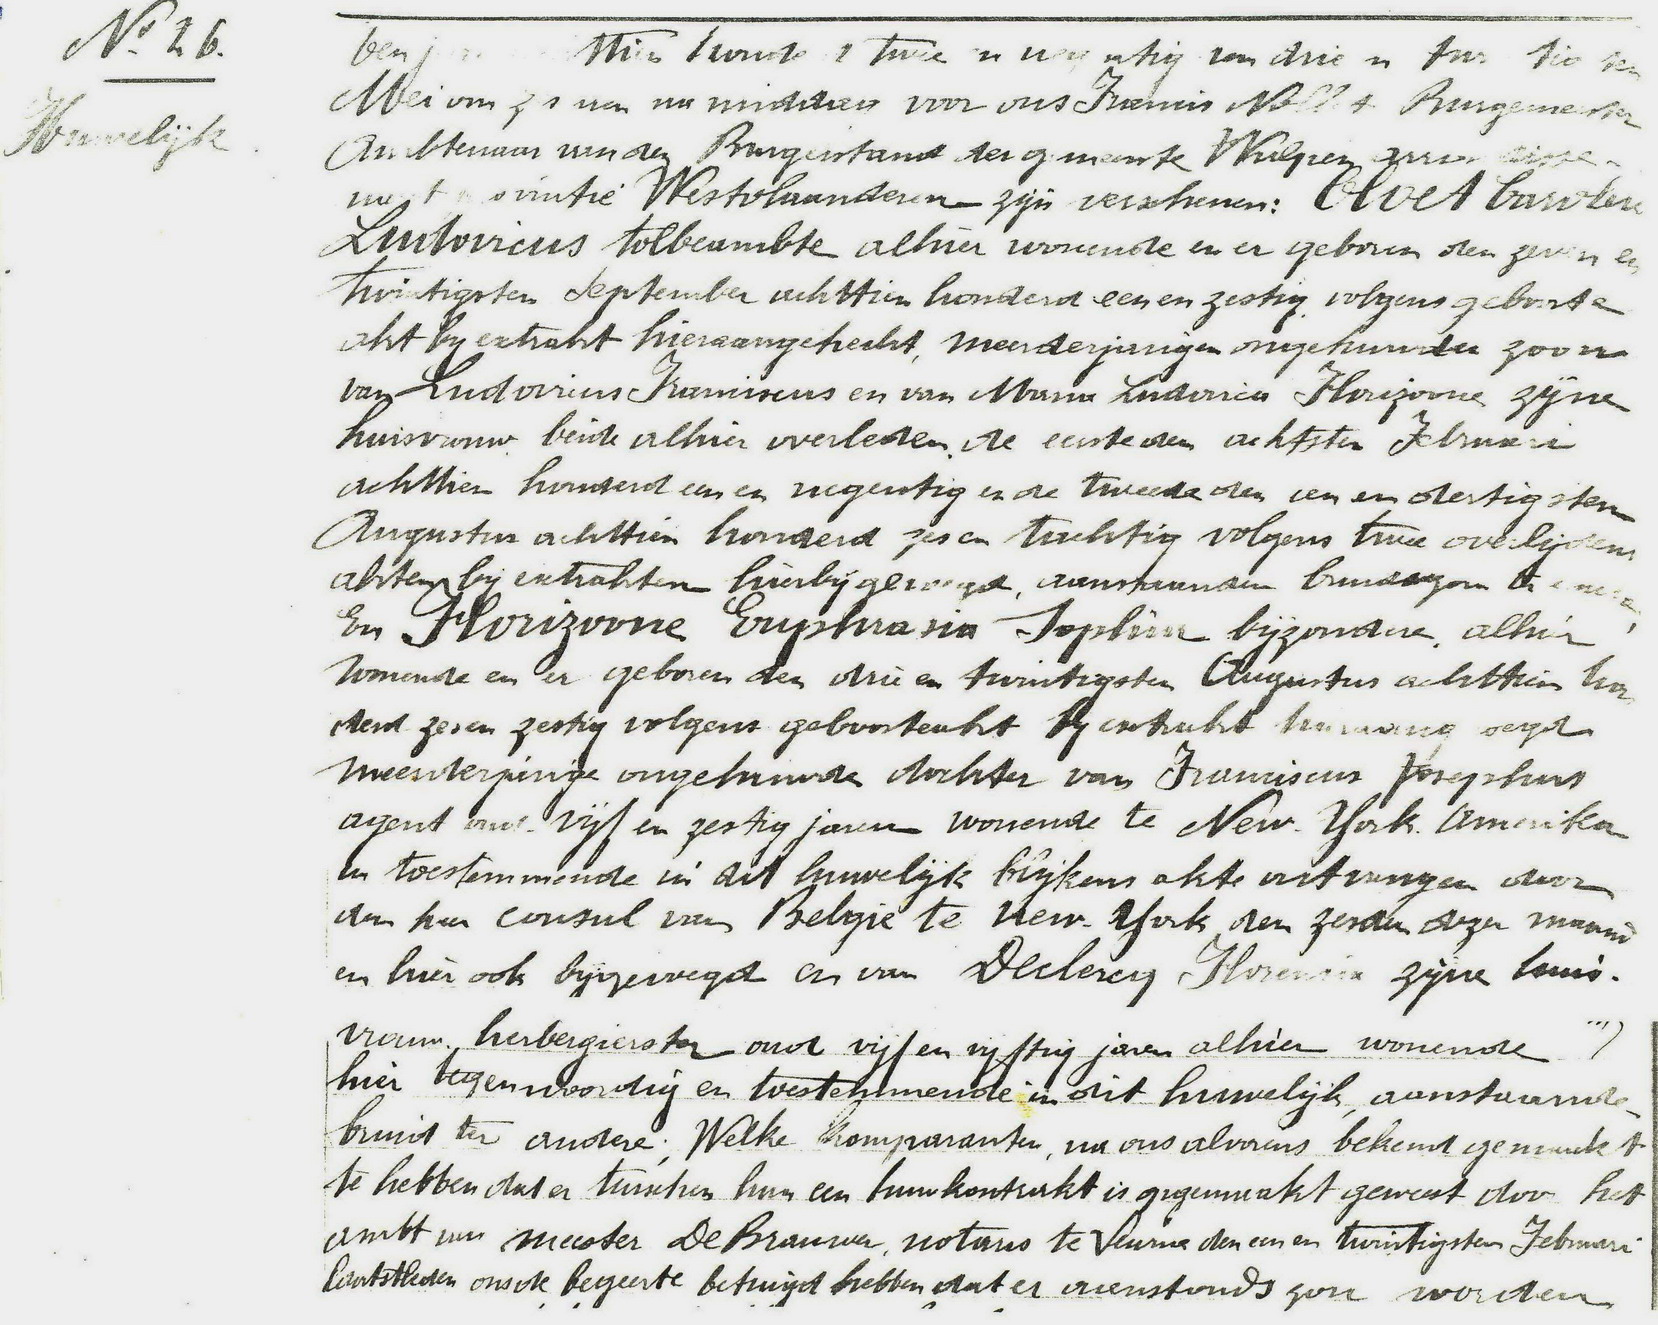 No 26.
Huwelijk
twee en negentig van drie en
Mei om zes uren na middag voor ons Francis Burgemeester
Ambtenaar van den Burgerstand der gemeente Wulpen arrondisse-
ment provintie Westvlaanderen zijn verschenen: Olvet
Ludovicus tolbeambte alhier wonende en er geboren den zeven en
twintigsten September achttien honderd een en zestig, volgens geboorte
akt by extrakt hieraangehecht, meerderjarigen ongehuwden zoon
van Ludovicus Franciscus en van Maria Ludovica Florizoone zijne
huisvrouw beide alhier overleden, de eerste den achtsten Februari
achttien honderd een en negentig en de tweede den een en dertigsten
Augustus achttien honderd zes en tachtig volgens twee overlijdens
akten bij extrakten hierbijgevoegd, aanstaanden bruidegom ter eener,
En Florizoone Euphrasia Sophia bijzondere, alhier
wonende en er geboren den drie en twintigsten Augustus achttien hon
derd zes en zestig volgens geboorteakt by extrakt hieraangevoegd
meerderjarige ongehuwde dochter van Franciscus Josephus
agent oud vijf en zestig jaren wonende te New-York. Amerika
en toestemmende in dit huwelijk blijkens akte ontvangen door
den heer consul van Belgie te New-York den zesden dezer maand
en hier ook bijgevoegd en van Declercq Florencia zijne huis-
vrouw, herbergierster oud vijf en vijftig jaren alhier wonende ''')
hier tegenwoordig en toestemmende in dit huwelijk, aanstaande
bruid ter andere; Welke komparanten, na ons alvorens bekend gemaakt
te hebben dat er tusschen hun een huwkontrakt is opgemaakt geweest door het
ambt van meester De Brauwer, notaris te Veurne den een en twintigsten Februari
laatstleden ons de begeerte betuigd hebben dat er aenstonds zou worden